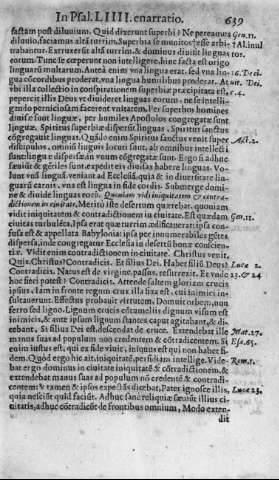 In Psal. LIIII. enarratio. 639
factam post diluvium. Quid dixerunt superbi? Ne pereamus Gen.11.
diluvio, faciamus altã turrim. Superbia se munitos esse arbi-
trabantur. Extruxerũt altã turrim, & dominus divisit linguas illo-
rum. Tunc se cœperunt non intelligere. hinc facta est origo
linguarũ multarum. Anteà enim una lingua erat. sed una lin-
gua cõcordibus proderat, una lingua humilibus proderat. At
ubi illa collectio in conspirationem superbiæ præcipitata est,
pepercit illis Deus ut divideret linguas eorum, ne se intelli-
gendo perniciosam facerent unitatem. Per superbos homines
divisæ sunt linguæ, per humiles Apostolos congregatæ sunt
linguæ. Spiritus superbiæ dispersit linguas, Spiritus sanctus
congregavit linguas. Quãdo enim Spiritus sanctus venit super Act.2.
discipulos, omniũ linguis locuti sunt, ab omnibus intellecti
sunt: linguæ dispersæ, in unum cõgregatæ sunt. Ergo si adhuc
sæviũt & gẽtiles sunt, expedit eis divisas habere linguas. Vo-
lunt unã linguã, veniant ad Ecclesiã, quia & in diversitate lin-
guarũ carnis, una est lingua in fide cordis. Submerge domi-
ne & divide linguas eorũ. Quoniam vidi iniquitatem & contra-
dictionem in civitate. Meritò iste desertum quærebat, quoniam
vidit iniquitatem & contradictionem in civitate. Est quædam Gen.11.
civitas turbulẽta. Ipsa erat quæ turrim ædificaverat: ipsa con-
fusa est & appellata Babylonia: ipsa per innumerabiles gẽtes
dispersa, inde congregatur Ecclesia in desertũ bonæ conscien-
tiæ. Vidit enim contradictionem in civitate. Christus venit,
Quis Christus? Contradicis. Filius Dei. Habet filiũ Deus? Lucæ 2.
Contradicis. Natus est de virgine, passus, resurrexit. Et unde 23. & 24
hoc fieri potest? Contradicis. Attende saltem gloriam crucis
ipsius. Iam in fronte regum crux illa fixa est, cui inimici in-
sultaverunt. Effectus probavit virtutem. Domuit orbem, non
ferro sed ligno. Lignum crucis contumeliis dignum visum est
inimicis, & ante ipsum lignum stantes caput agitabant, & di-
cebant, Si filius Dei est, descendat de cruce. Extendebat ille Mat.27.
manus suas ad populum non credentem & cõtradicentem. Si Esa.65.
enim iustus est, qui ex fide vivit, iniquus est qui non habet fi-
dem. Quòd ergo hîc ait, iniquitatẽ, perfidiam intellige. Vide- Rom.1.
bat ergo dominus in civitate iniquitatẽ & cõtradictionem, &
extendebat manus suas ad populum nõ credentẽ & contradi-
centem: & tamẽ & ipsos expectãs dicebat, Pater ignosce illis, Lucæ 23.
quia nesciũt quid faciũt. Adhuc sanè reliquiæ sæviũt illius ci-
vitatis, adhuc cõtradicũt de frontibus omnium, Modo exten-
dit